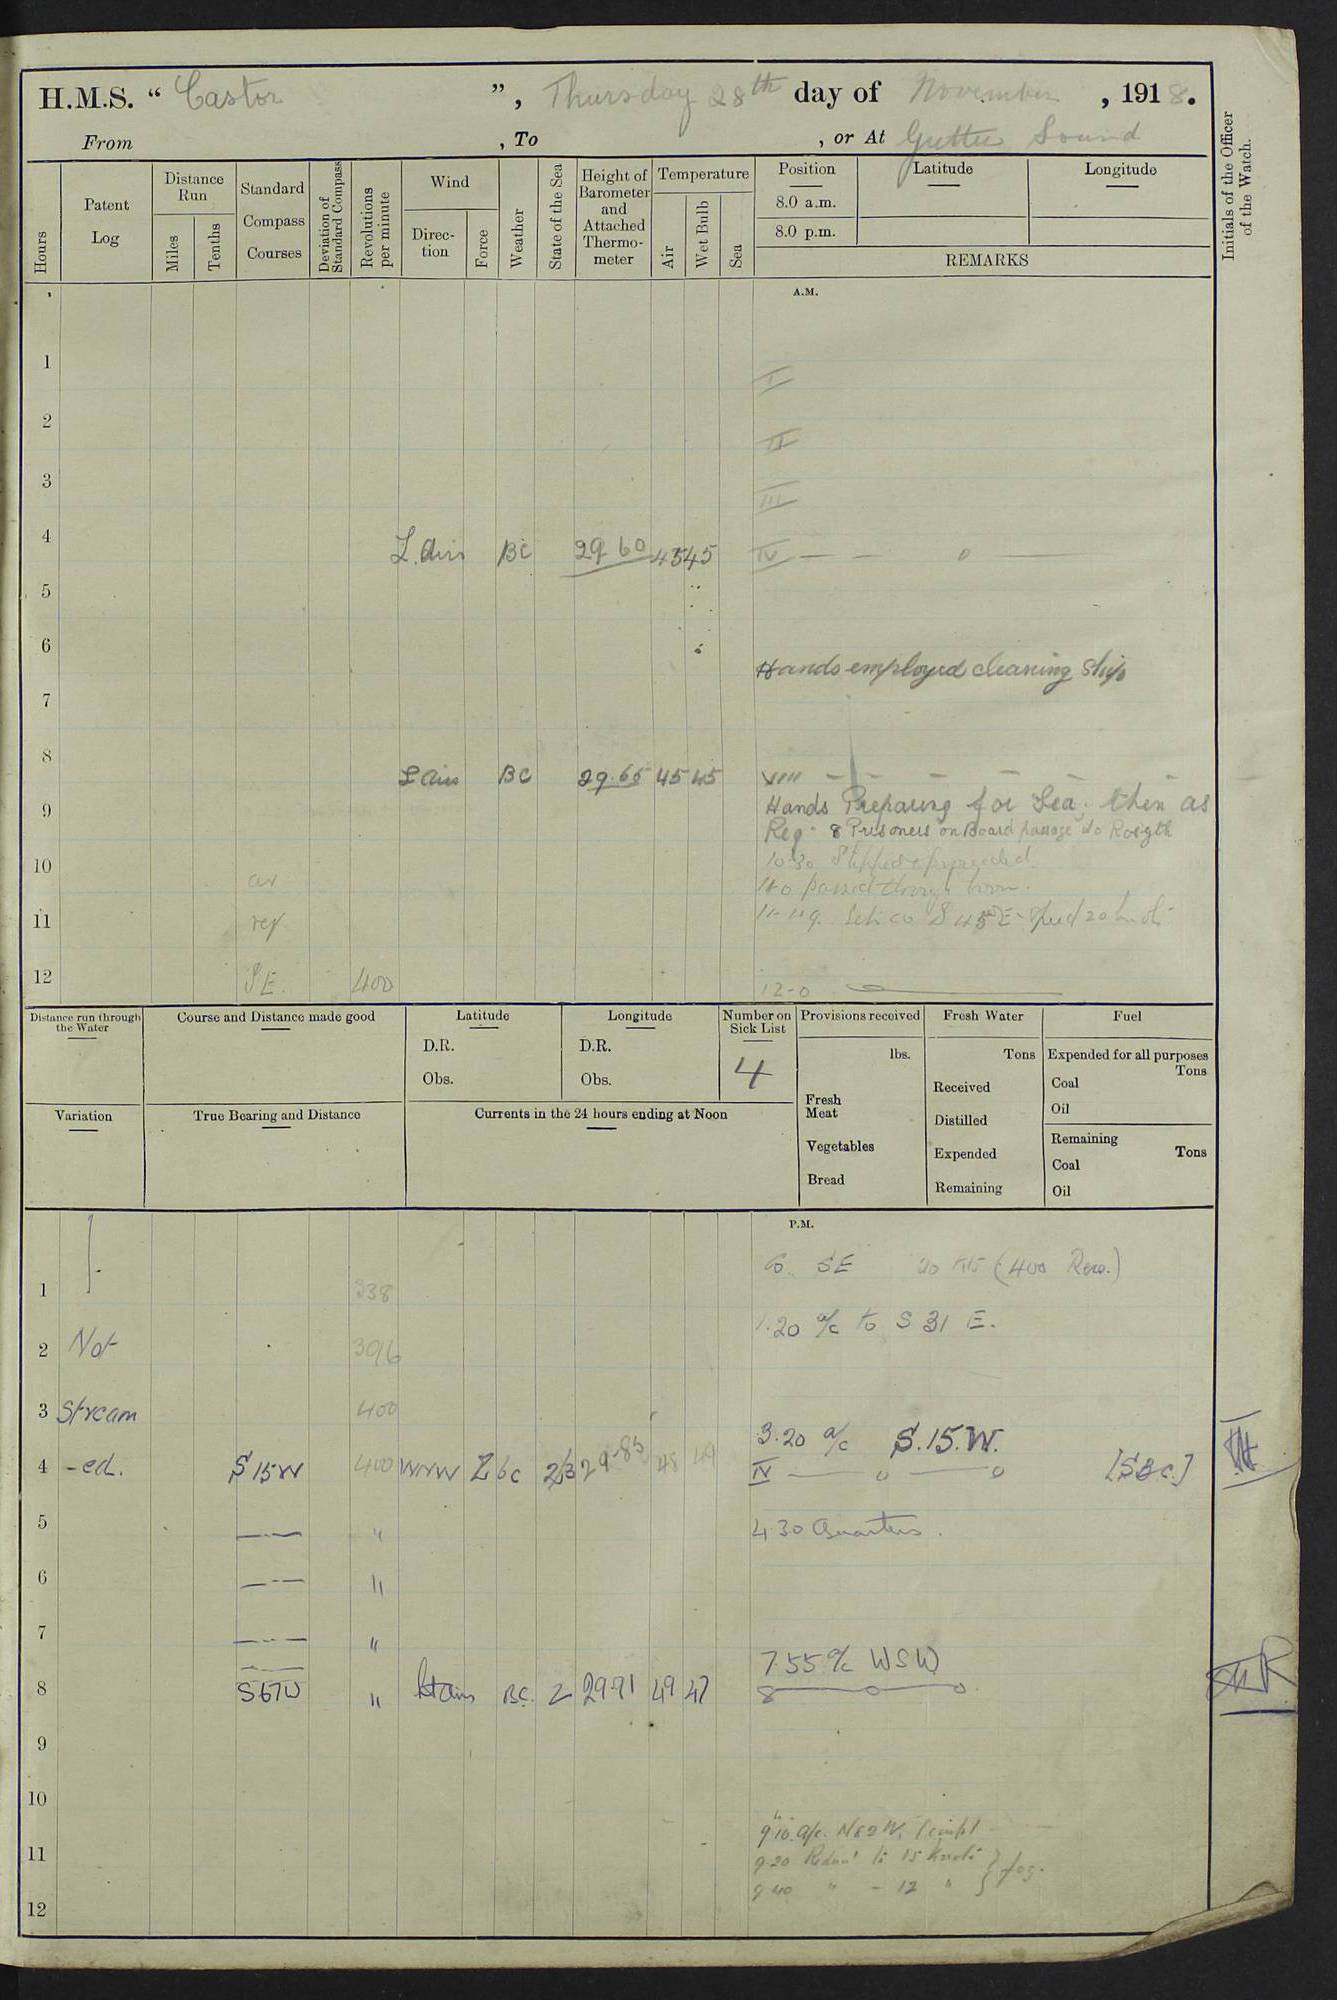 H.M.S. “ Castor ”, Thursday 28th day of November, 1918.
From , To , or At Gutter Sound
Hours
Patent Log
Distance Run
Miles
Tenths
Standard Compass Courses
Deviation of Standard Compass
Revolutions per minute
Wind
Direc-tion
Force
Weather
State of the Sea
Height of Barometer and Attached Thermo-meter
Temperature
Air
Wet Bulb
Sea
Position Latitude Longitude
8.0 a.m.
8.0 p.m.
REMARKS
Initials of the Officer of the Watch.
A.M.
1 I
2 II
3 III
4 L. airs BC 29 60 45 45 IV
5
6
Hands employed cleaning Ship
7
8 L airs BC 29.65 45 45 VIII
Hands Preparing for Sea. then as
9
Req. 8 Prisoners on Board passage to Rosyth
10 10.30 Slipped & proceeded.
11.0 passed through boom.
11 11-119. Set co S 45 E Speed 20 knots
12 SE. 400 12-0
Distance run through the Water
Course and Distance made good
Latitude
D.R.
Obs.
Longitude
D.R.
Obs.
Number on Sick List
4
Provisions received
lbs.
Fresh Meat
Vegetables
Bread
Fresh Water
Tons
Received
Distilled
Expended
Remaining
Fuel
Expended for all purposes
Tons
Coal
Oil
Remaining
Tons
Coal
Oil
Variation
True Bearing and Distance
Currents in the 24 hours ending at Noon
P.M.
Co. SE 20 Kts (400 Revs.)
1 338
1.20 a/c to S 31 E.
2 Not 396
3 Stream 400
3.20 a/c S.15.W.
4 -ed. S 15 W 400 WNW 2 bc 2/3 29.85 48 49 IV [SBC.]
5 " 4.30 Quarters.
6 "
7 "
7.55 a/c WSW
8 S67W " Lt airs BC. 2 29 91 49 47 8
9
10
9.10. a/c. N 62 W.
11 9.20 Reduced to 15 Knots } fog.
9.40 " - 12 "
12